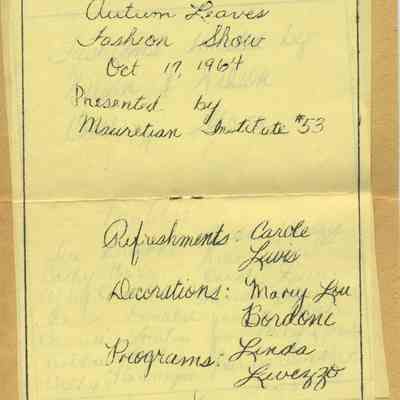 Autum Leaves
Fashion Show
Oct 17, 1964
Presented by
Mauretian Institute #53
Refreshments: Carole
Lewis
Decorations: Mary Lou
Bordoni
Programs: Linda